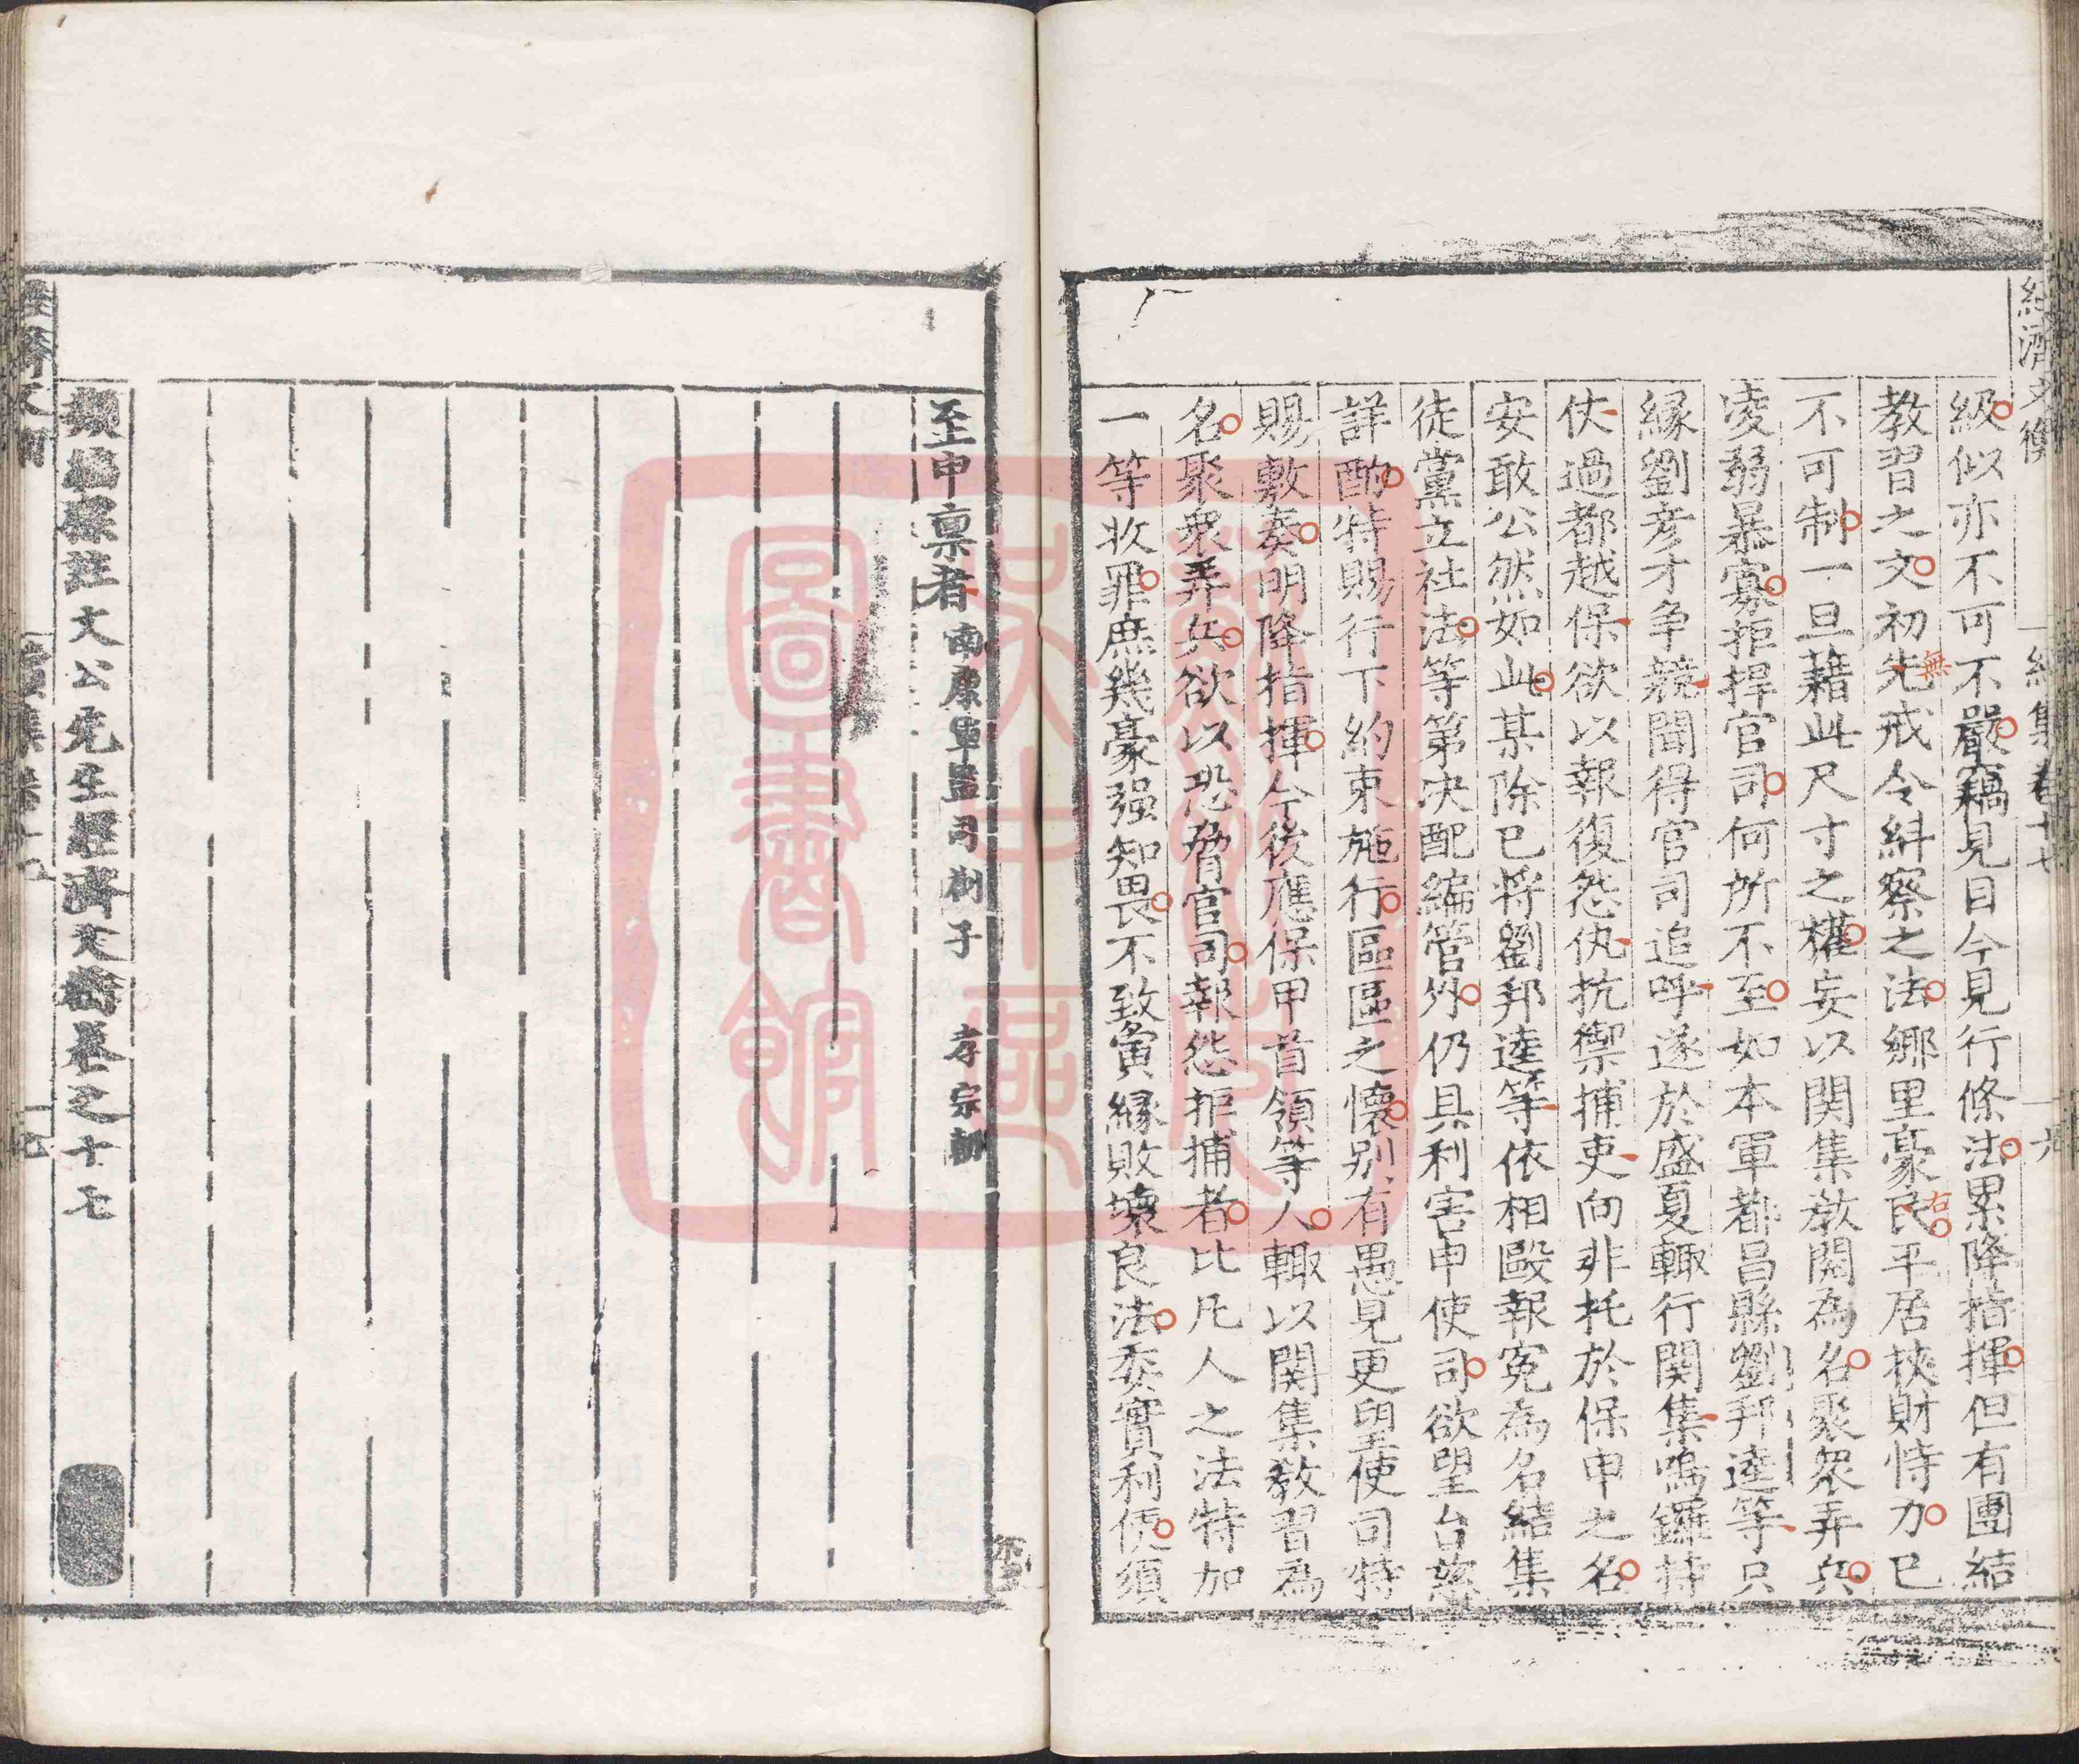 級似亦不可不嚴竊見目今見行條法累降指揮但有團結
教習之文初先戒令糾察之法鄉里豪民平居挾財恃力已
無
右
不可制一旦藉此尺寸之權妄以関集教閱為名聚衆弄兵
凌弱暴寡拒捍官司何所不至如本軍都昌縣劉邦逵等只
縁劉彦才争競聞得官司追呼遂於盛夏輙行関集鳴鑼持
仗過都越保欲以報復怨仇抗禦捕吏向非托於保甲之名
安敢公然如此某除已将劉邦逵等依相毆報寃為名結集
徒黨立社法等第决配編管外仍具利害申使司欲望台慈
詳酌特賜行下約束施行區區之懷别有愚見更望使司特
賜敷奏明降指揮今後應保甲首領等人輙以関集教習為
名聚衆弄兵欲以恐脅官司報怨拒捕者比凡人之法特加
一等收罪庶幾豪强知畏不致夤縁敗壞良法委實利便須
至申禀者 南康軍監司劄子 孝宗朝
類編標註文公先生經濟文衡卷之十七
經濟文衡 續集卷十七 十九
吴中區圖書館